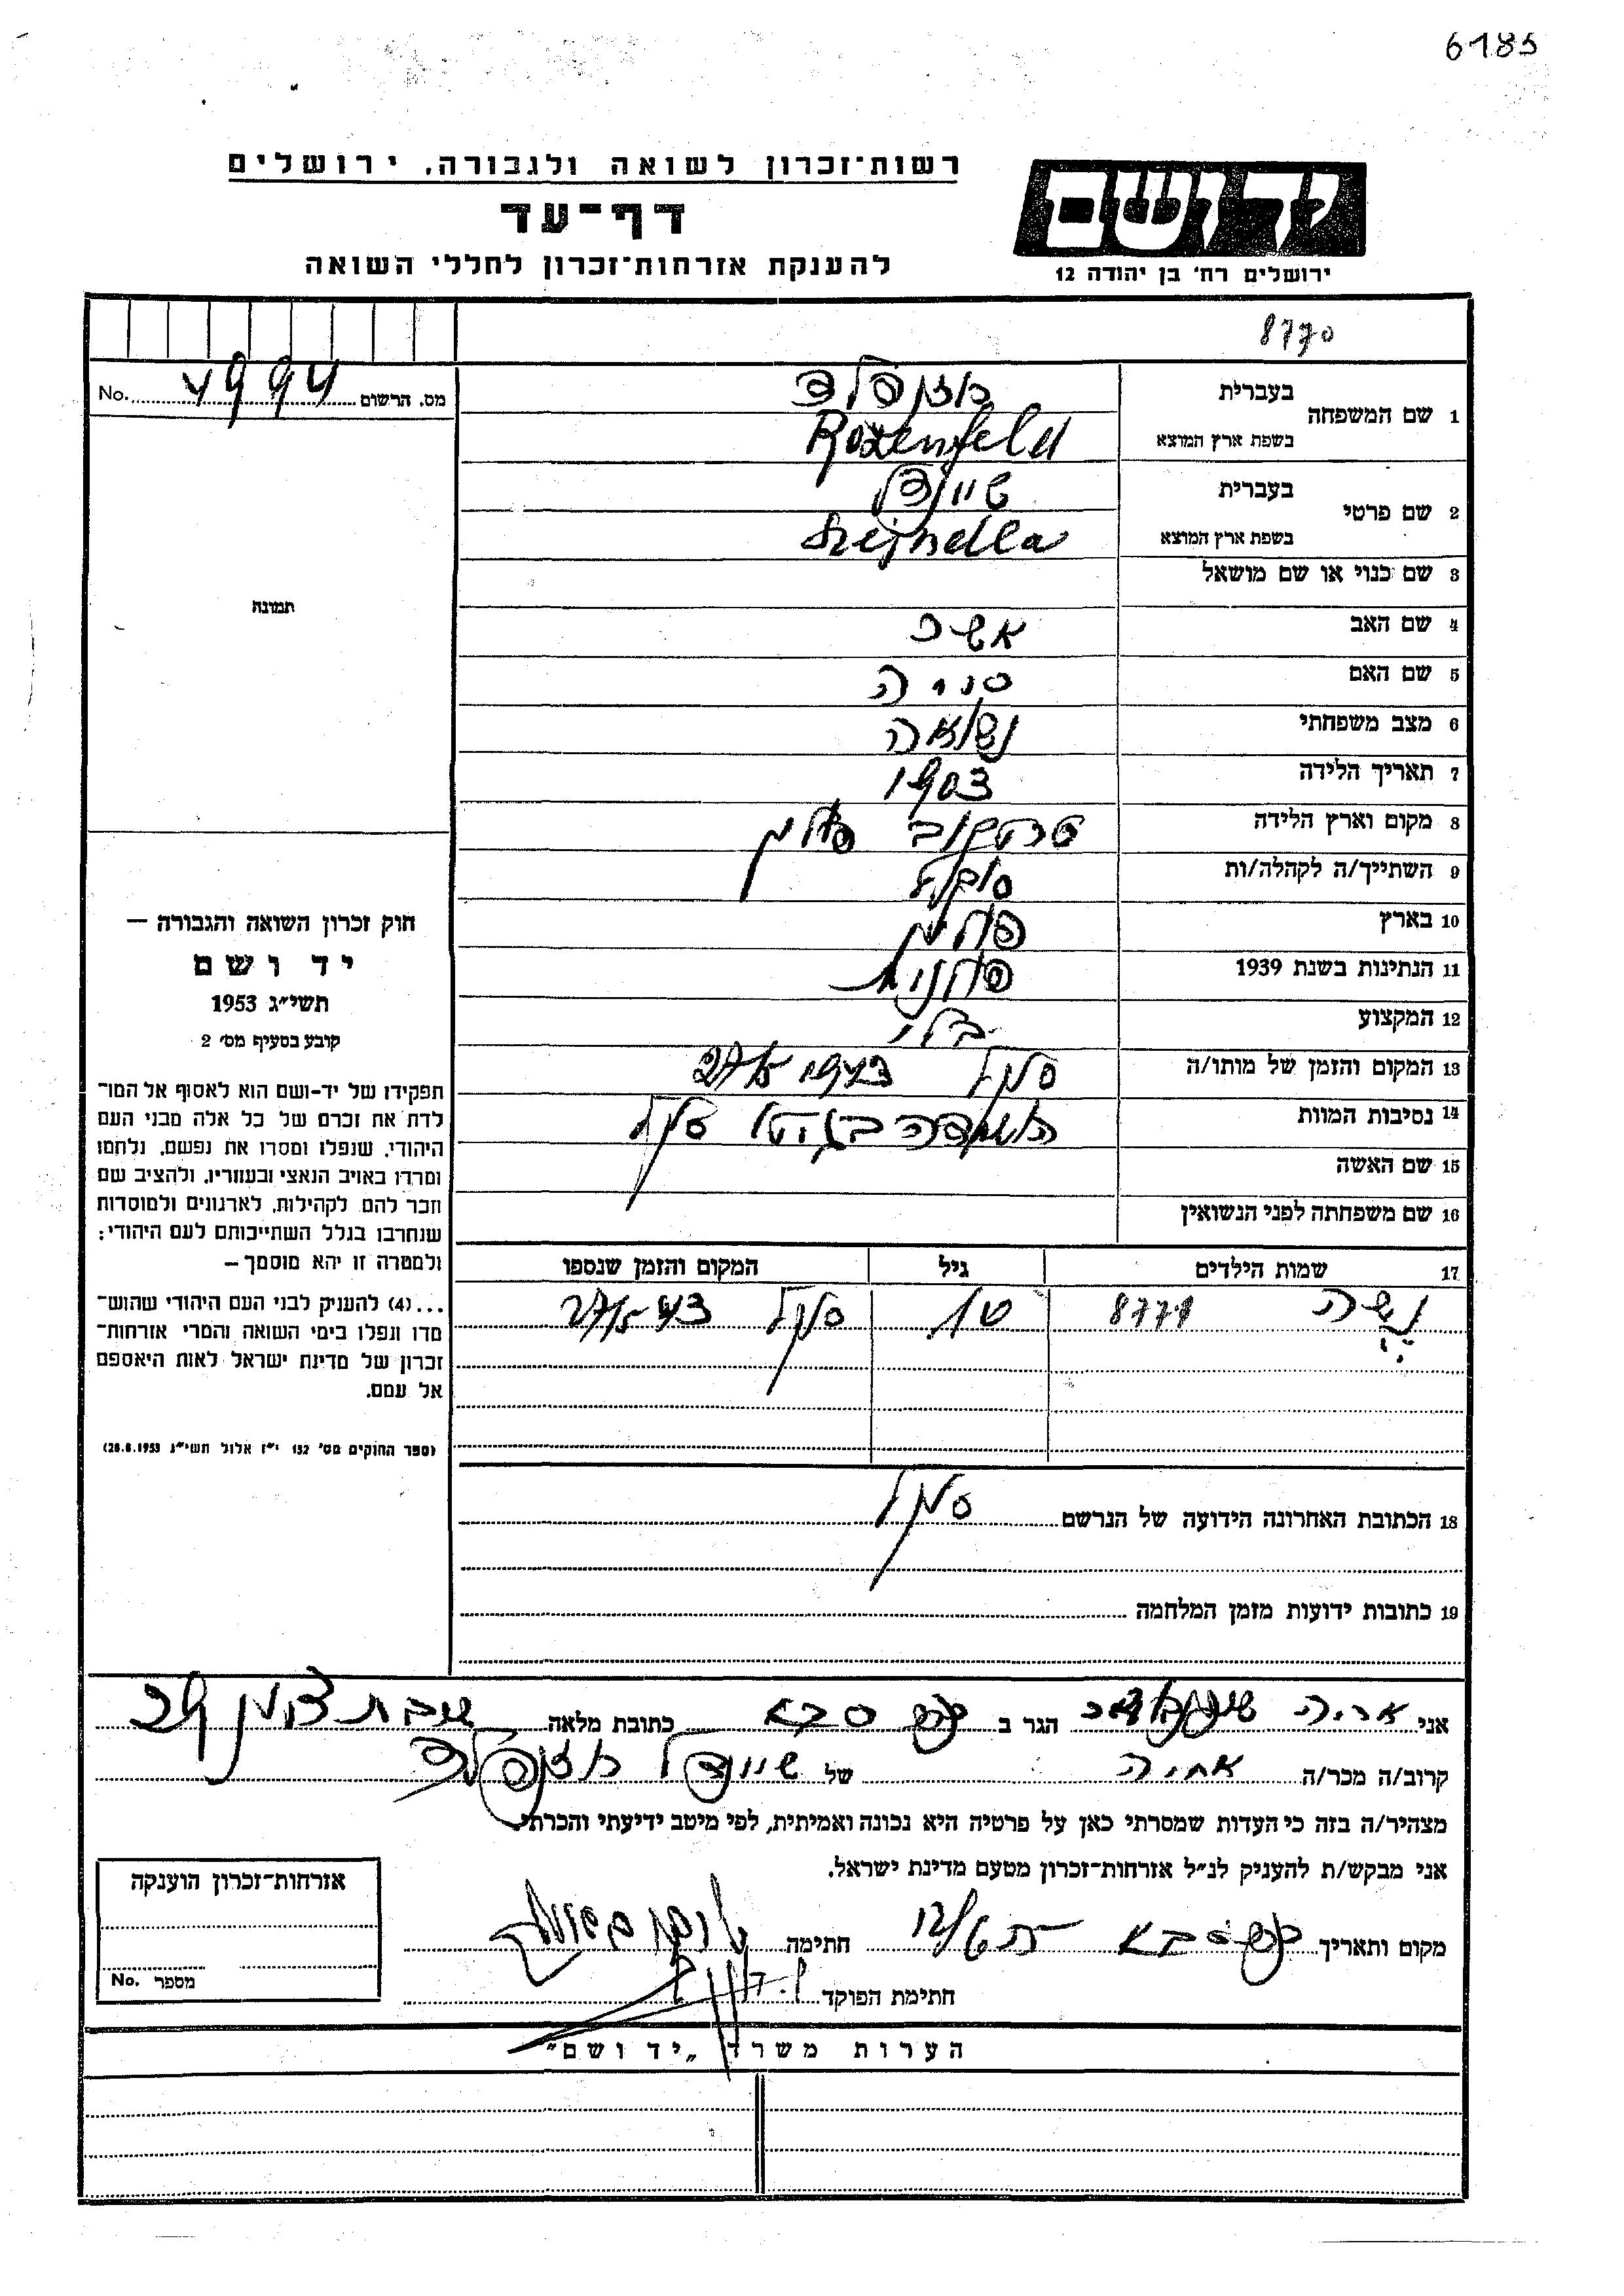 6185
רשות־זכרון לשואה ולגבורה, ירושלים
יד ושם
דף־עד
להענקת אזרחות־זכרון לחללי השואה
ירושלים רח׳ בן יהודה 12
8770
מס. הרשום No.
1 שם המשפחה בעברית רוזנפלד
בשפת ארץ המוצא Rozenfeld
2 שם פרטי בעברית שיינדל
בשפת ארץ המוצא Szejndla
3 שם כנוי או שם מושאל
4 שם האב אשר
5 שם האם
6 מצב משפחתי נשואה
7 תאריך הלידה 1903
8 מקום וארץ הלידה פולין
9 השתייך/ה לקהלה/ות
10 בארץ פולין
11 הנתינות בשנת 1939 פולנית
12 המקצוע
13 המקום והזמן של מותו/ה 1943 27/5
14 נסיבות המוות הושמדה בגטו
15 שם האשה
16 שם משפחתה לפני הנשואין
17 שמות הילדים גיל המקום והזמן שנספו
8771 43 27/5
18 הכתובת האחרונה הידועה של הנרשם
19 כתובות ידועות מזמן המלחמה
תמונה
חוק זכרון השואה והגבורה —
יד ושם
תשי״ג 1953
קובע בסעיף מס׳ 2
תפקידו של יד־ושם הוא לאסוף אל המו־
לדת את זכרם של כל אלה מבני העם
היהודי, שנפלו ומסרו את נפשם, נלחמו
ומרדו באויב הנאצי ובעוזריו, ולהציב שם
וזכר להם לקהילות, לארגונים ולמוסדות
שנחרבו בגלל השתייכותם לעם היהודי;
ולמטרה זו יהא מוסמך —
...(4) להעניק לבני העם היהודי שהוש־
מדו ונפלו בימי השואה והמרי אזרחות־
זכרון של מדינת ישראל לאות היאספם
אל עמם.
(ספר החוקים מס׳ 132 י״ז אלול תשי״ג 28.8.1953)
אני אריה הגר ב כפר סבא כתובת מלאה שיבת ציון 29
קרוב/ה מכר/ה אחיה של שיינדל רוזנפלד
מצהיר/ה בזה כי העדות שמסרתי כאן על פרטיה היא נכונה ואמיתית, לפי מיטב ידיעתי והכרתי.
אני מבקש/ת להעניק לנ״ל אזרחות־זכרון מטעם מדינת ישראל.
מקום ותאריך כפר סבא חתימה
חתימת הפוקד
אזרחות־זכרון הוענקה
מספר No.
הערות משרד „יד ושם״